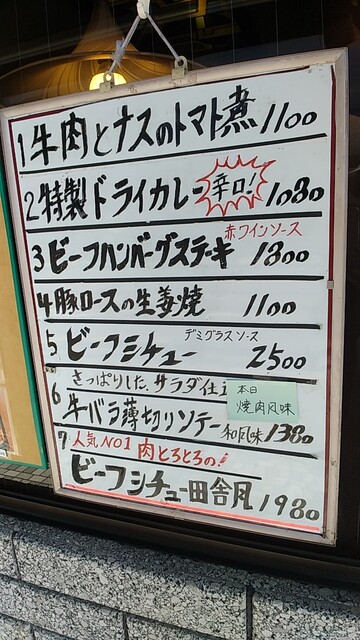 1 牛肉とナスのトマト煮 1100
2 特製ドライカレー 辛口! 1080
赤ワインソース
3 ビーフハンバーグステーキ 1300
4 豚ロースの生姜焼 1100
デミグラスソース
5 ビーフシチュー 2500
6 さっぱりした、サラダ仕立
本日
焼肉風味
牛バラ薄切りソテー 和風味 1380
7 人気NO1 肉とろとろの!
ビーフシチュー田舎風 1980